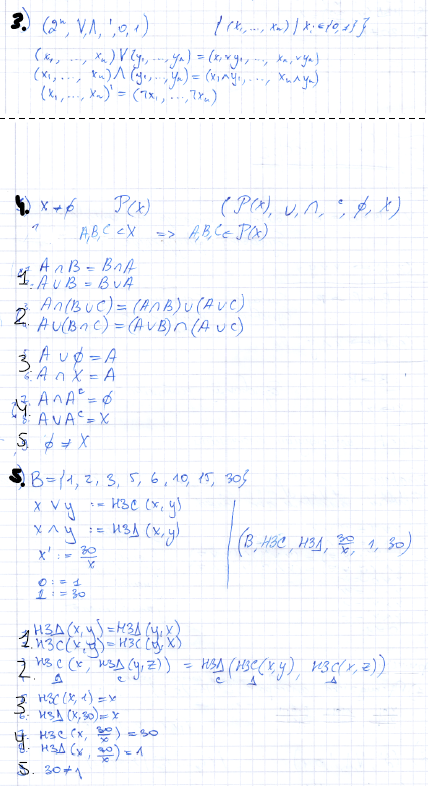 3.) (2ⁿ, ∨, ∧, ', 0, 1) {(x₁, ..., xₙ) | xᵢ ∈ {0,1}}
(x₁, ..., xₙ) ∨ (y₁, ..., yₙ) = (x₁∨y₁, ..., xₙ∨yₙ)
(x₁, ..., xₙ) ∧ (y₁, ..., yₙ) = (x₁∧y₁, ..., xₙ∧yₙ)
(x₁, ..., xₙ)' = (¬x₁, ..., ¬xₙ)
4.) X ≠ ∅ P(X) (P(X), ∪, ∩, ᶜ, ∅, X)
A,B,C ⊂ X => A,B,C ∈ P(X)
1. A ∩ B = B ∩ A
A ∪ B = B ∪ A
2. A ∩ (B ∪ C) = (A ∩ B) ∪ (A ∪ C)
A ∪ (B ∩ C) = (A ∪ B) ∩ (A ∪ C)
3. A ∪ ∅ = A
A ∩ X = A
4. A ∩ Aᶜ = ∅
A ∪ Aᶜ = X
5. ∅ ≠ X
5.) B = {1, 2, 3, 5, 6, 10, 15, 30}
x ∨ y := НЗС (x, y)
x ∧ y := НЗД (x, y)
x' := 30/x (B, НЗС, НЗД, 30/x, 1, 30)
0 := 1
1 := 30
1. НЗД (x, y) = НЗД (y, x)
НЗС (x, y) = НЗС (y, x)
2. НЗС (x, НЗД (y, z)) = НЗД (НЗС (x, y), НЗС (x, z))
Д С С Д Д
3. НЗС (x, 1) = x
НЗД (x, 30) = x
4. НЗС (x, 30/x) = 30
НЗД (x, 30/x) = 1
5. 30 ≠ 1